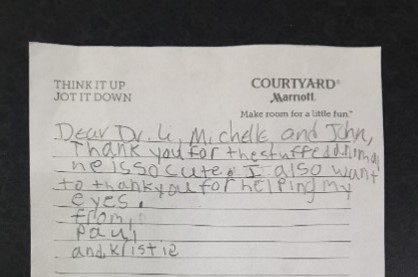 THINK IT UP
JOT IT DOWN
COURTYARD®
Marriott.
Make room for a little fun.™
Dear Dr. Li, Michelle and John,
Thank you for the stuffed animal
he is so cute. I also want
to thank you for helping my
eyes.
from,
Paul
and Kristie